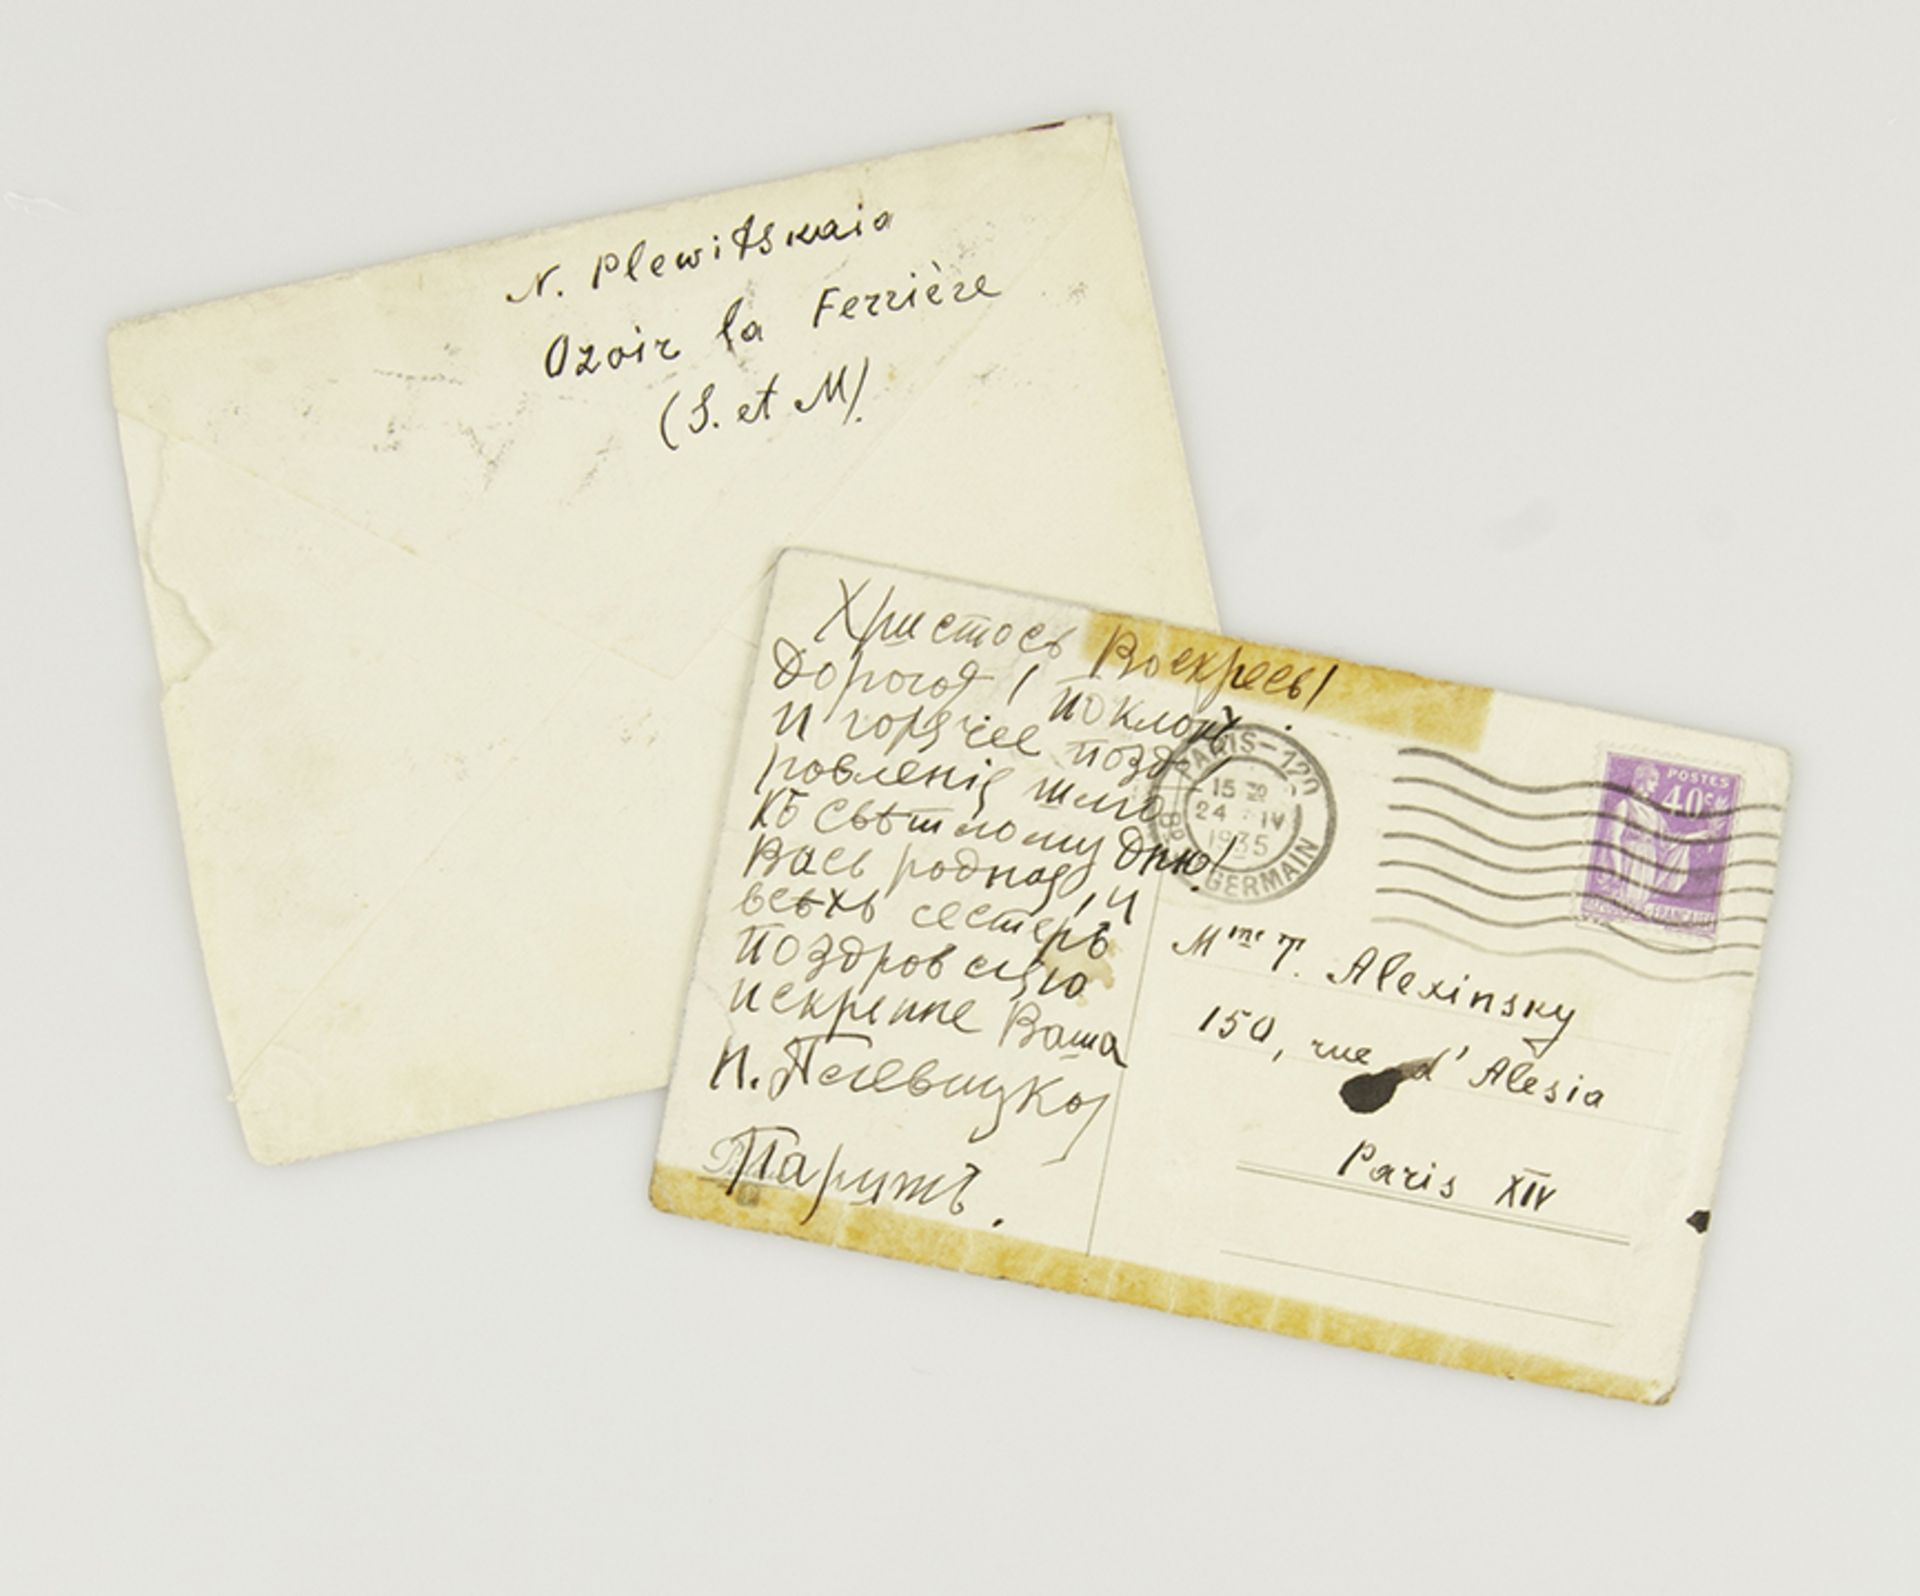 N. Plewitskaia
Ozoir la Ferrière
(S. et M).
Христосъ Воскресъ!
Дорогая! поклонъ
и горячее позд-
ровленія шлю
къ свѣтлому дню!
Васъ родная, и
всѣхъ сестеръ
поздровляю
искренне Ваша
Н. Плевицкая
Парижъ.
PARIS-120
15
24 IV
1935
GERMAIN
POSTES
40c
Mme T. Alexinsky
150, rue d'Alesia
Paris XIV